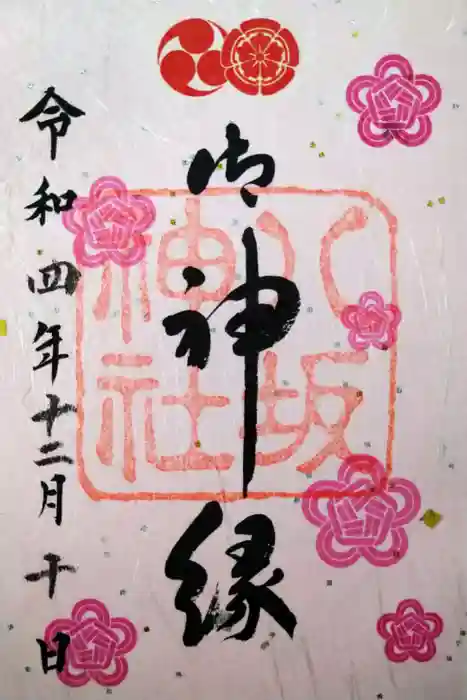 御神縁
八坂神社
令和四年十二月十日